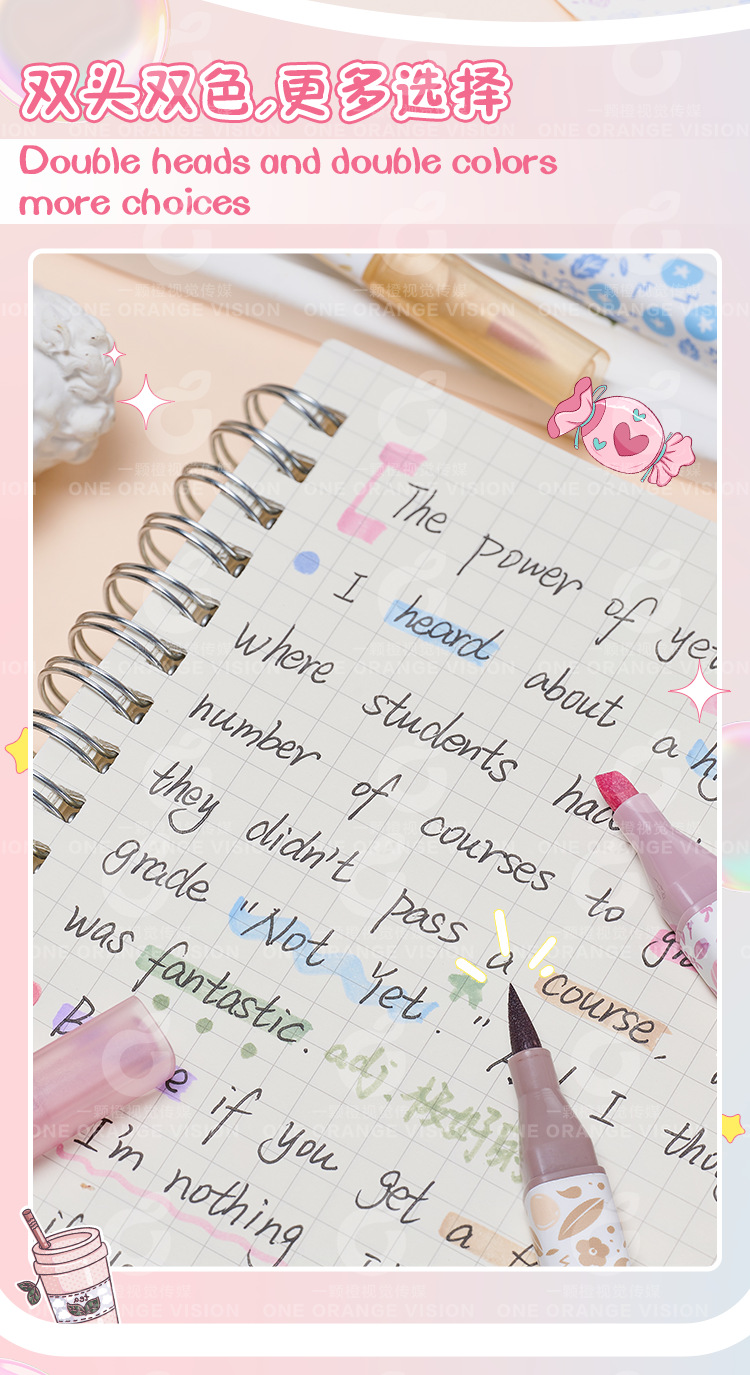 双头双色,更多选择
Double heads and double colors
more choices
一颗橙视觉传媒
ONE ORANGE VISION
The power of yet
I heard about a
where students had
number of courses to
they didn't pass a course,
grade "Not Yet."
was fantastic.
adj.
if you get a
I'm nothing
I thou
tea